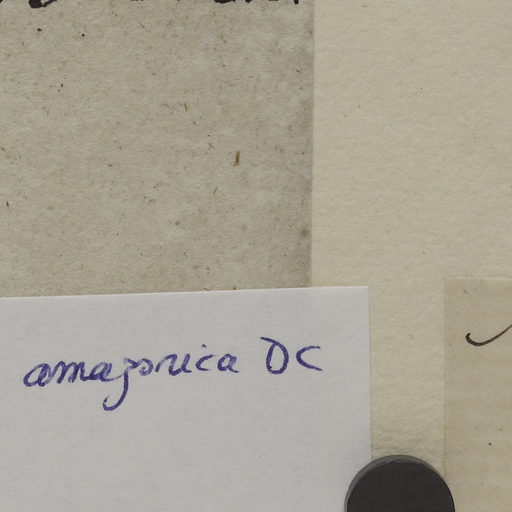 amazonica DC